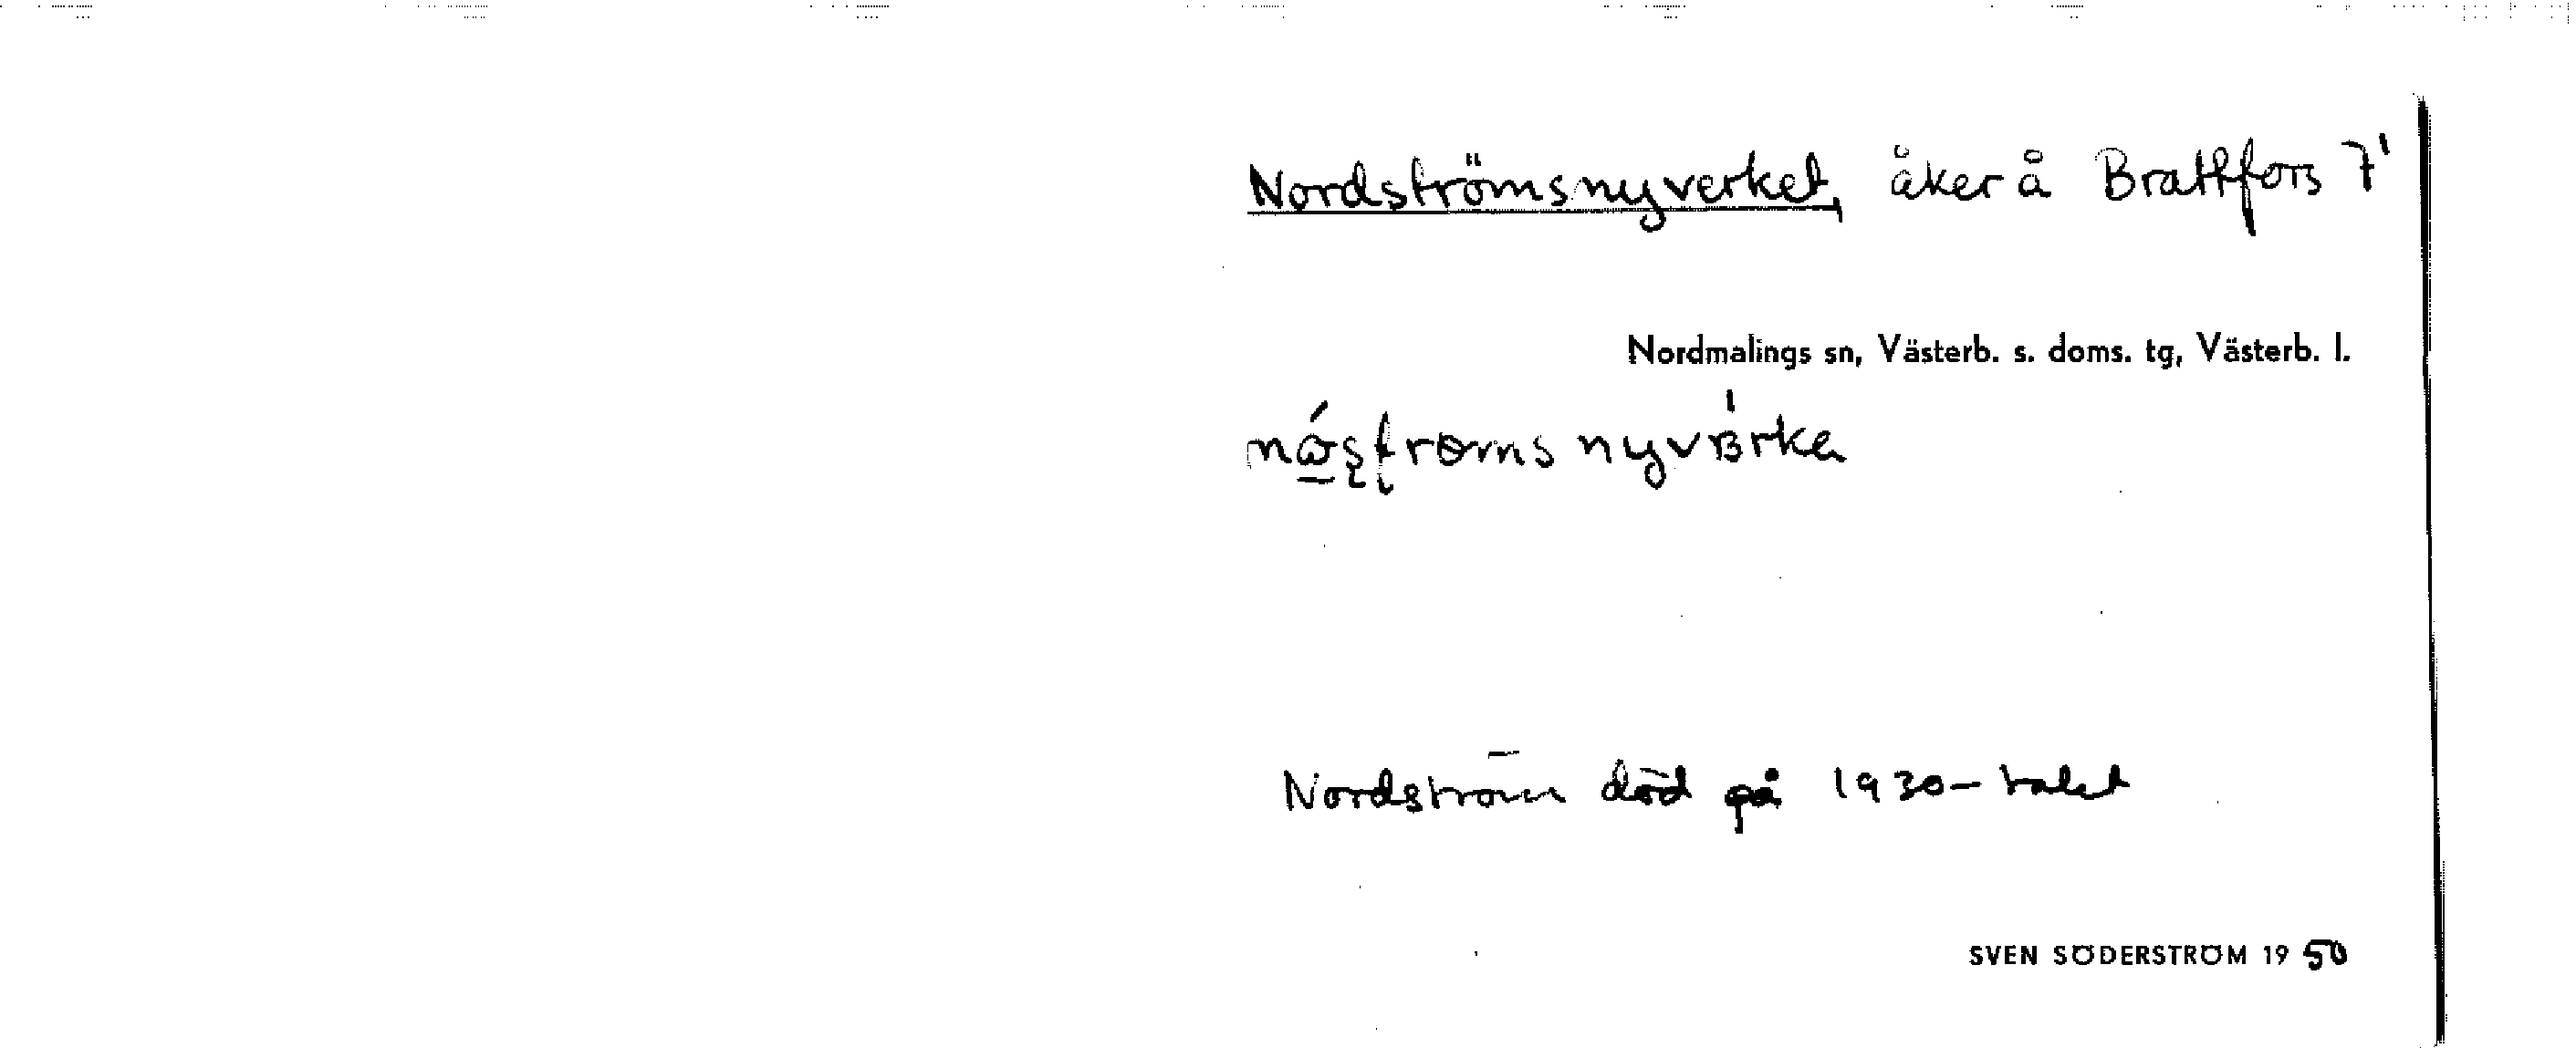 Nordströmsnyverket, åker å Brattfors 7¹
Nordmalings sn, Västerb. s. doms. tg, Västerb. l.
Nordström död på 1930-talet
SVEN SÖDERSTRÖM 1950